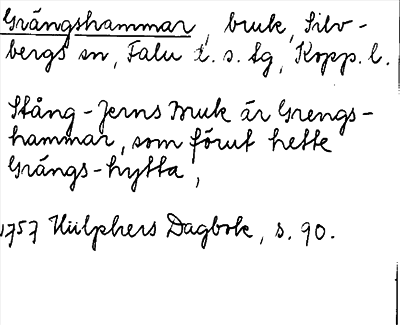 Grängshammar, bruk, Silv-
bergs sn, Falu l. s. tg, Kopp. l.
Stång-Jerns Bruk är Grengs-
hammar, som förut hette
Grängs-hytta,
1757 Hülphers Dagbok, s. 90.